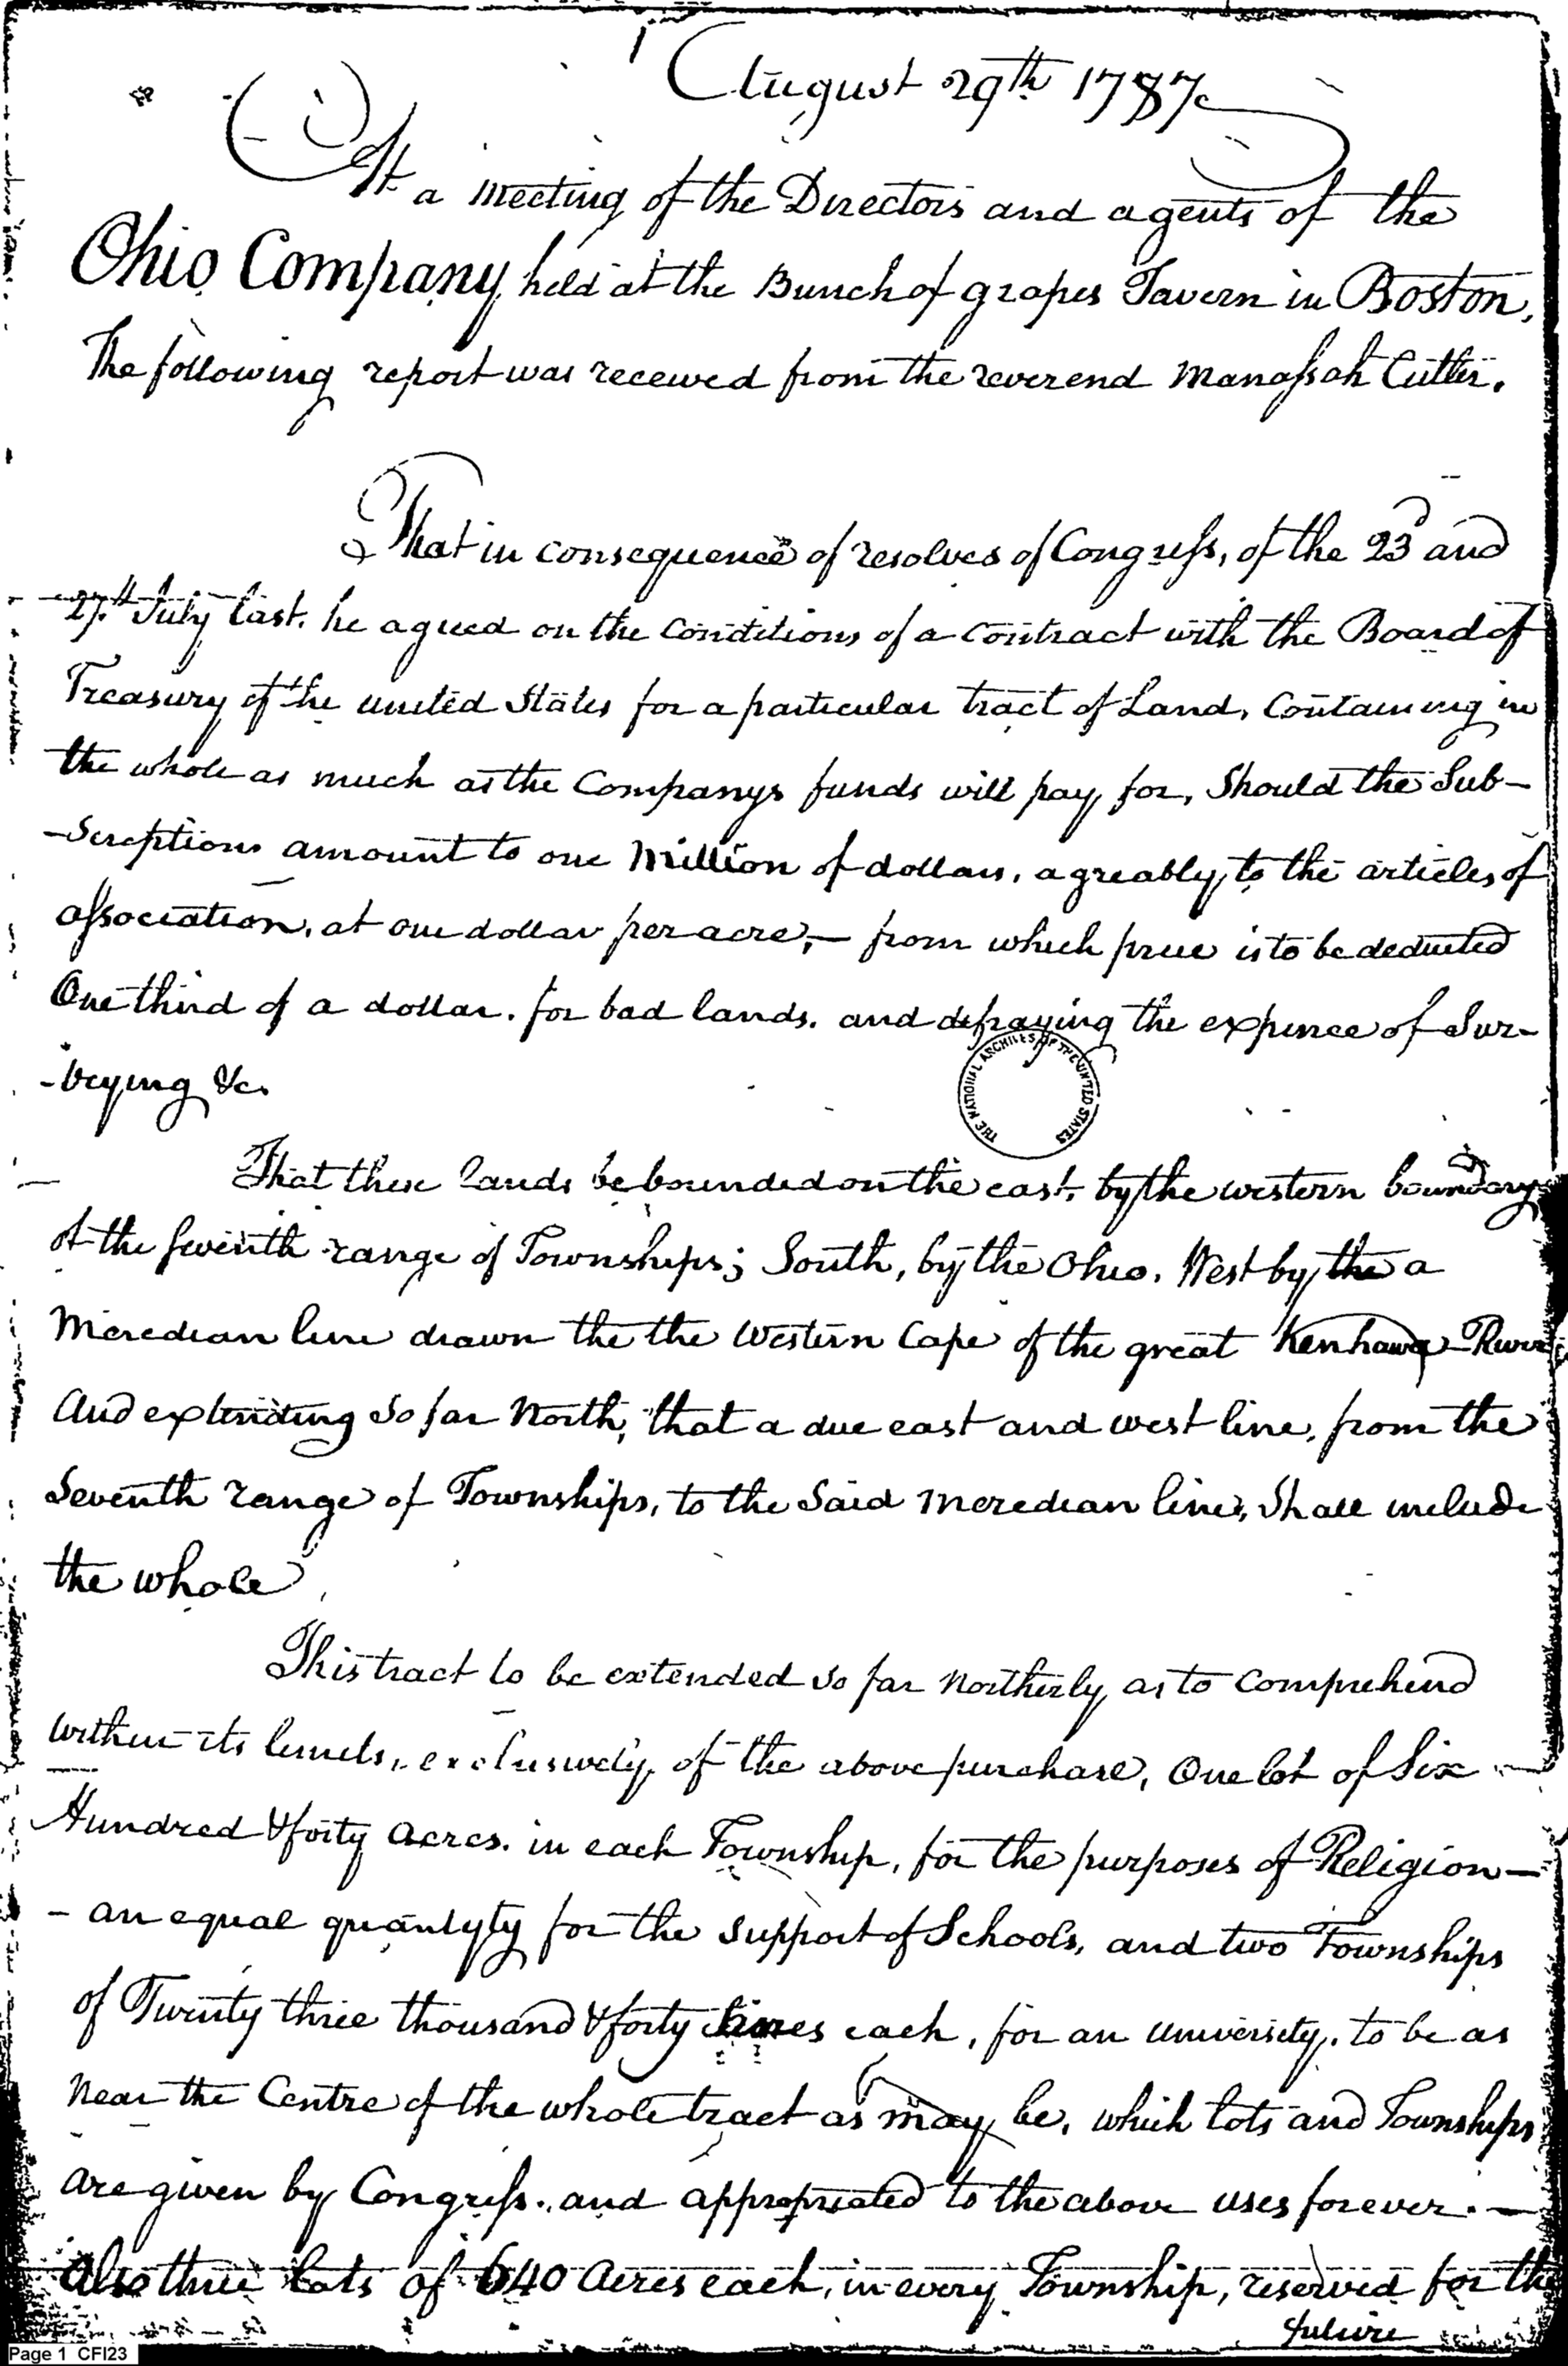 August 29th 1787
At a meeting of the Directors and agents of the
Ohio Company, held at the Bunch of grapes Tavern in Boston,
The following report was received from the reverend Manassah Cutler.
That in consequence of resolves of Congress, of the 23d and
27th July last. he agreed on the conditions of a contract with the Board of
Treasury of the united States for a particular tract of Land, Containing in
the whole as much as the Companys funds will pay, for, Should the Sub-
-Scriptions amount to one Million of dollars, agreably, to the articles of
association, at one dollar per acre,— from which price is to be deducted
One third of a dollar. for bad lands. and defraying the expence of Sur-
-veying &c.
THE NATIONAL ARCHIVES OF THE UNITED STATES
That these lands be bounded on the east, by the western boundary
of the seventh range of Townships; South, by the Ohio. West by the a
Meredian line drawn the the Western Cape of the great Kenhawa River,
And extending So far North, that a due east and west line, from the
Seventh range of Townships, to the Said Meredian line, Shall include
the whole
This tract to be extended so far Northerly, as to Comprehend
within its limits, exclusively, of the above purchase, One lot of Six
Hundred & forty Acres. in each Township, for the purposes of Religion—
- an equal quantyty for the Support of Schools, and two Townships
of Twenty three thousand & forty Acres each, for an university. to be as
Near the Centre of the whole tract as may be, which lots and Townships
are given by Congress. and appropriated to the above uses forever.—
Also three lots of 640 Acres each, in every Township, reserved for the
future
Page 1 CFI23